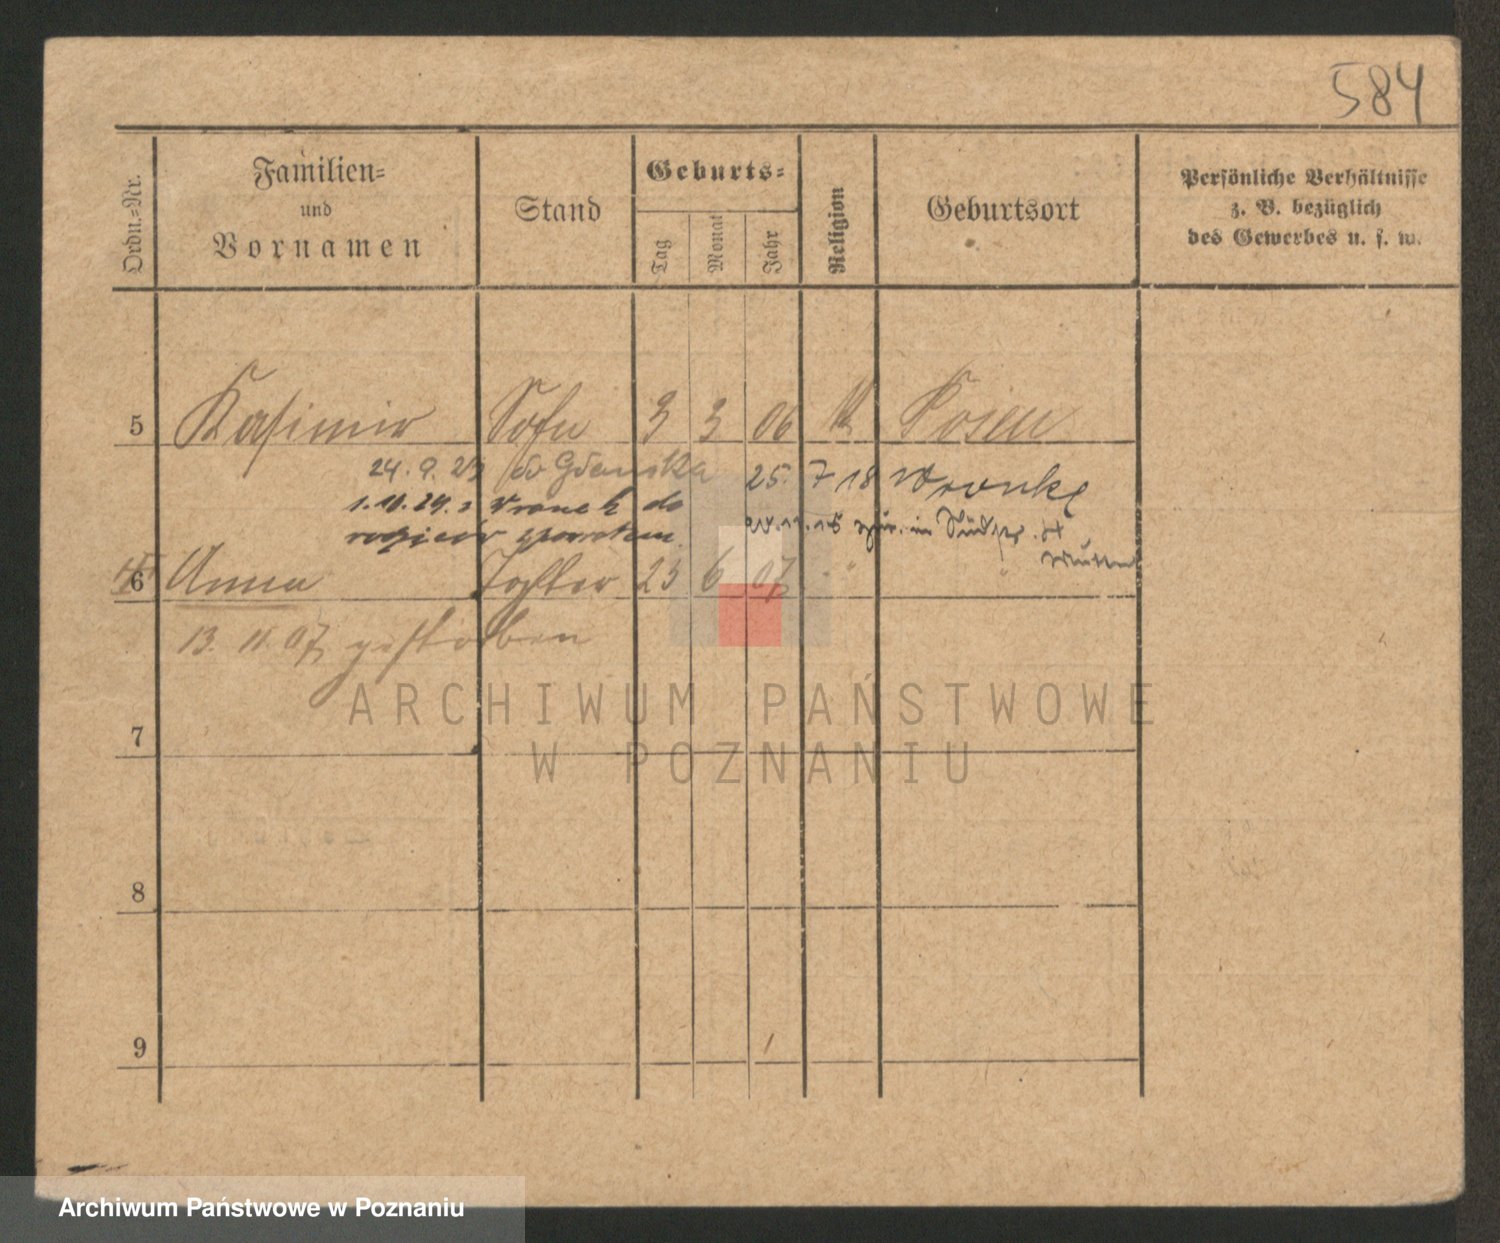 584
Ordn.-Nr.
Familien-
und
Vornamen
Stand
Geburts-
Tag
Monat
Jahr
Religion
Geburtsort
Persönliche Verhältnisse
z. B. bezüglich
des Gewerbes u. s. w.
5 Kasimir Sohn 3 3 06 k Posen
24. 9. 23 do Gdańska 25. 7 18 Wronke
1.10.24. z Wronek do
rodziców 21.11.18 zur. in
Mutter
6 Anna Tochter 23 6 07 " "
13. 11. 07 gestorben
7
8
9
ARCHIWUM PAŃSTWOWE
W POZNANIU
Archiwum Państwowe w Poznaniu